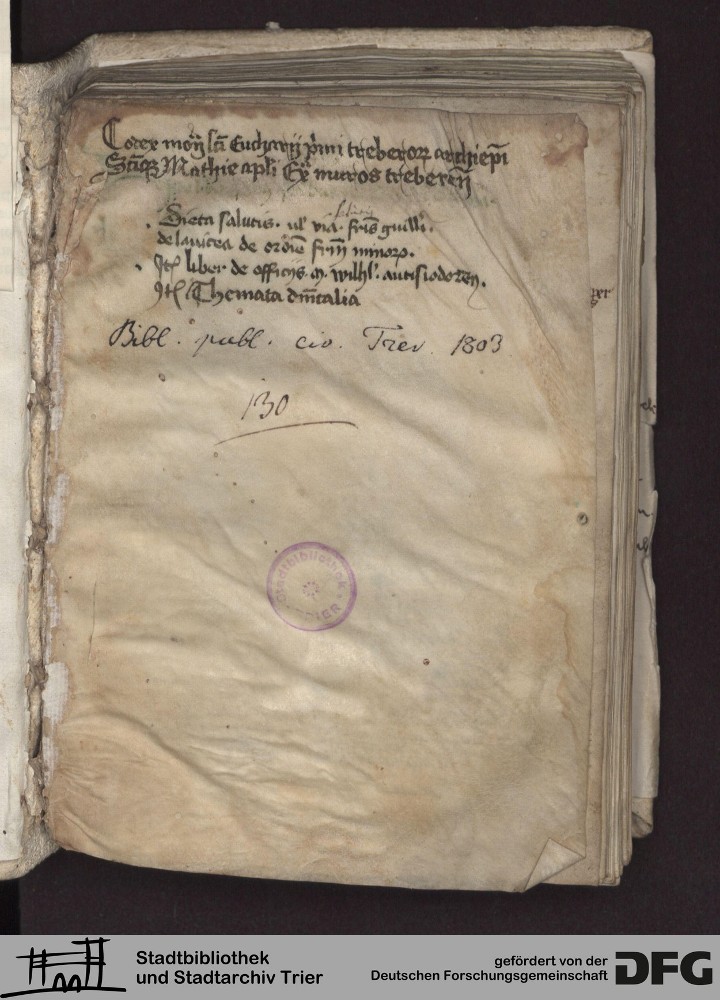 Codex moñ sci Eucharij pͥmi treberoꝝ archiepi
Scͥqꝫ Mathie apli Ex̄ muros treberen̄
Dieta salutis. ul' via. fr̄is guill'i.
de lauicea de ordīe fr̄m minoꝝ.
Itē liber de officijs. m. wilhl'. autisiodoren̄.
Itē Themata dn̄icalia
Bibl. publ. civ. Trev. 1803
130
Stadtbibliothek
TRIER
Stadtbibliothek
und Stadtarchiv Trier
gefördert von der
Deutschen Forschungsgemeinschaft
DFG